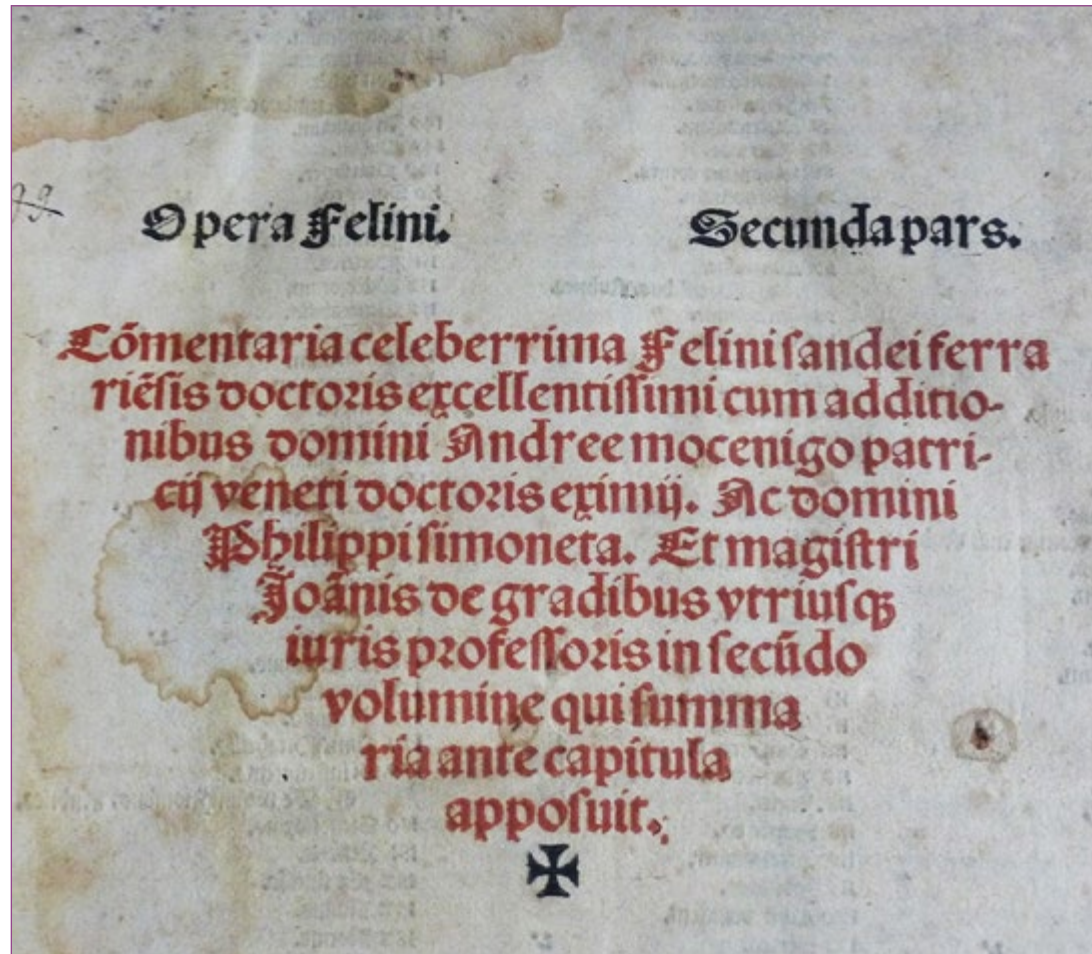 Opera Felini. Secunda pars.
Cōmentaria celeberrima Felini sandei ferra
riēsis doctoris excellentissimi cum additio-
nibus domini Andree mocenigo patri-
cij veneti doctoris eximij. Ac domini
Philippi simoneta. Et magistri
Joānis de gradibus vtriusqȝ
iuris professoris in secūdo
volumine qui summa
ria ante capitula
apposuit.